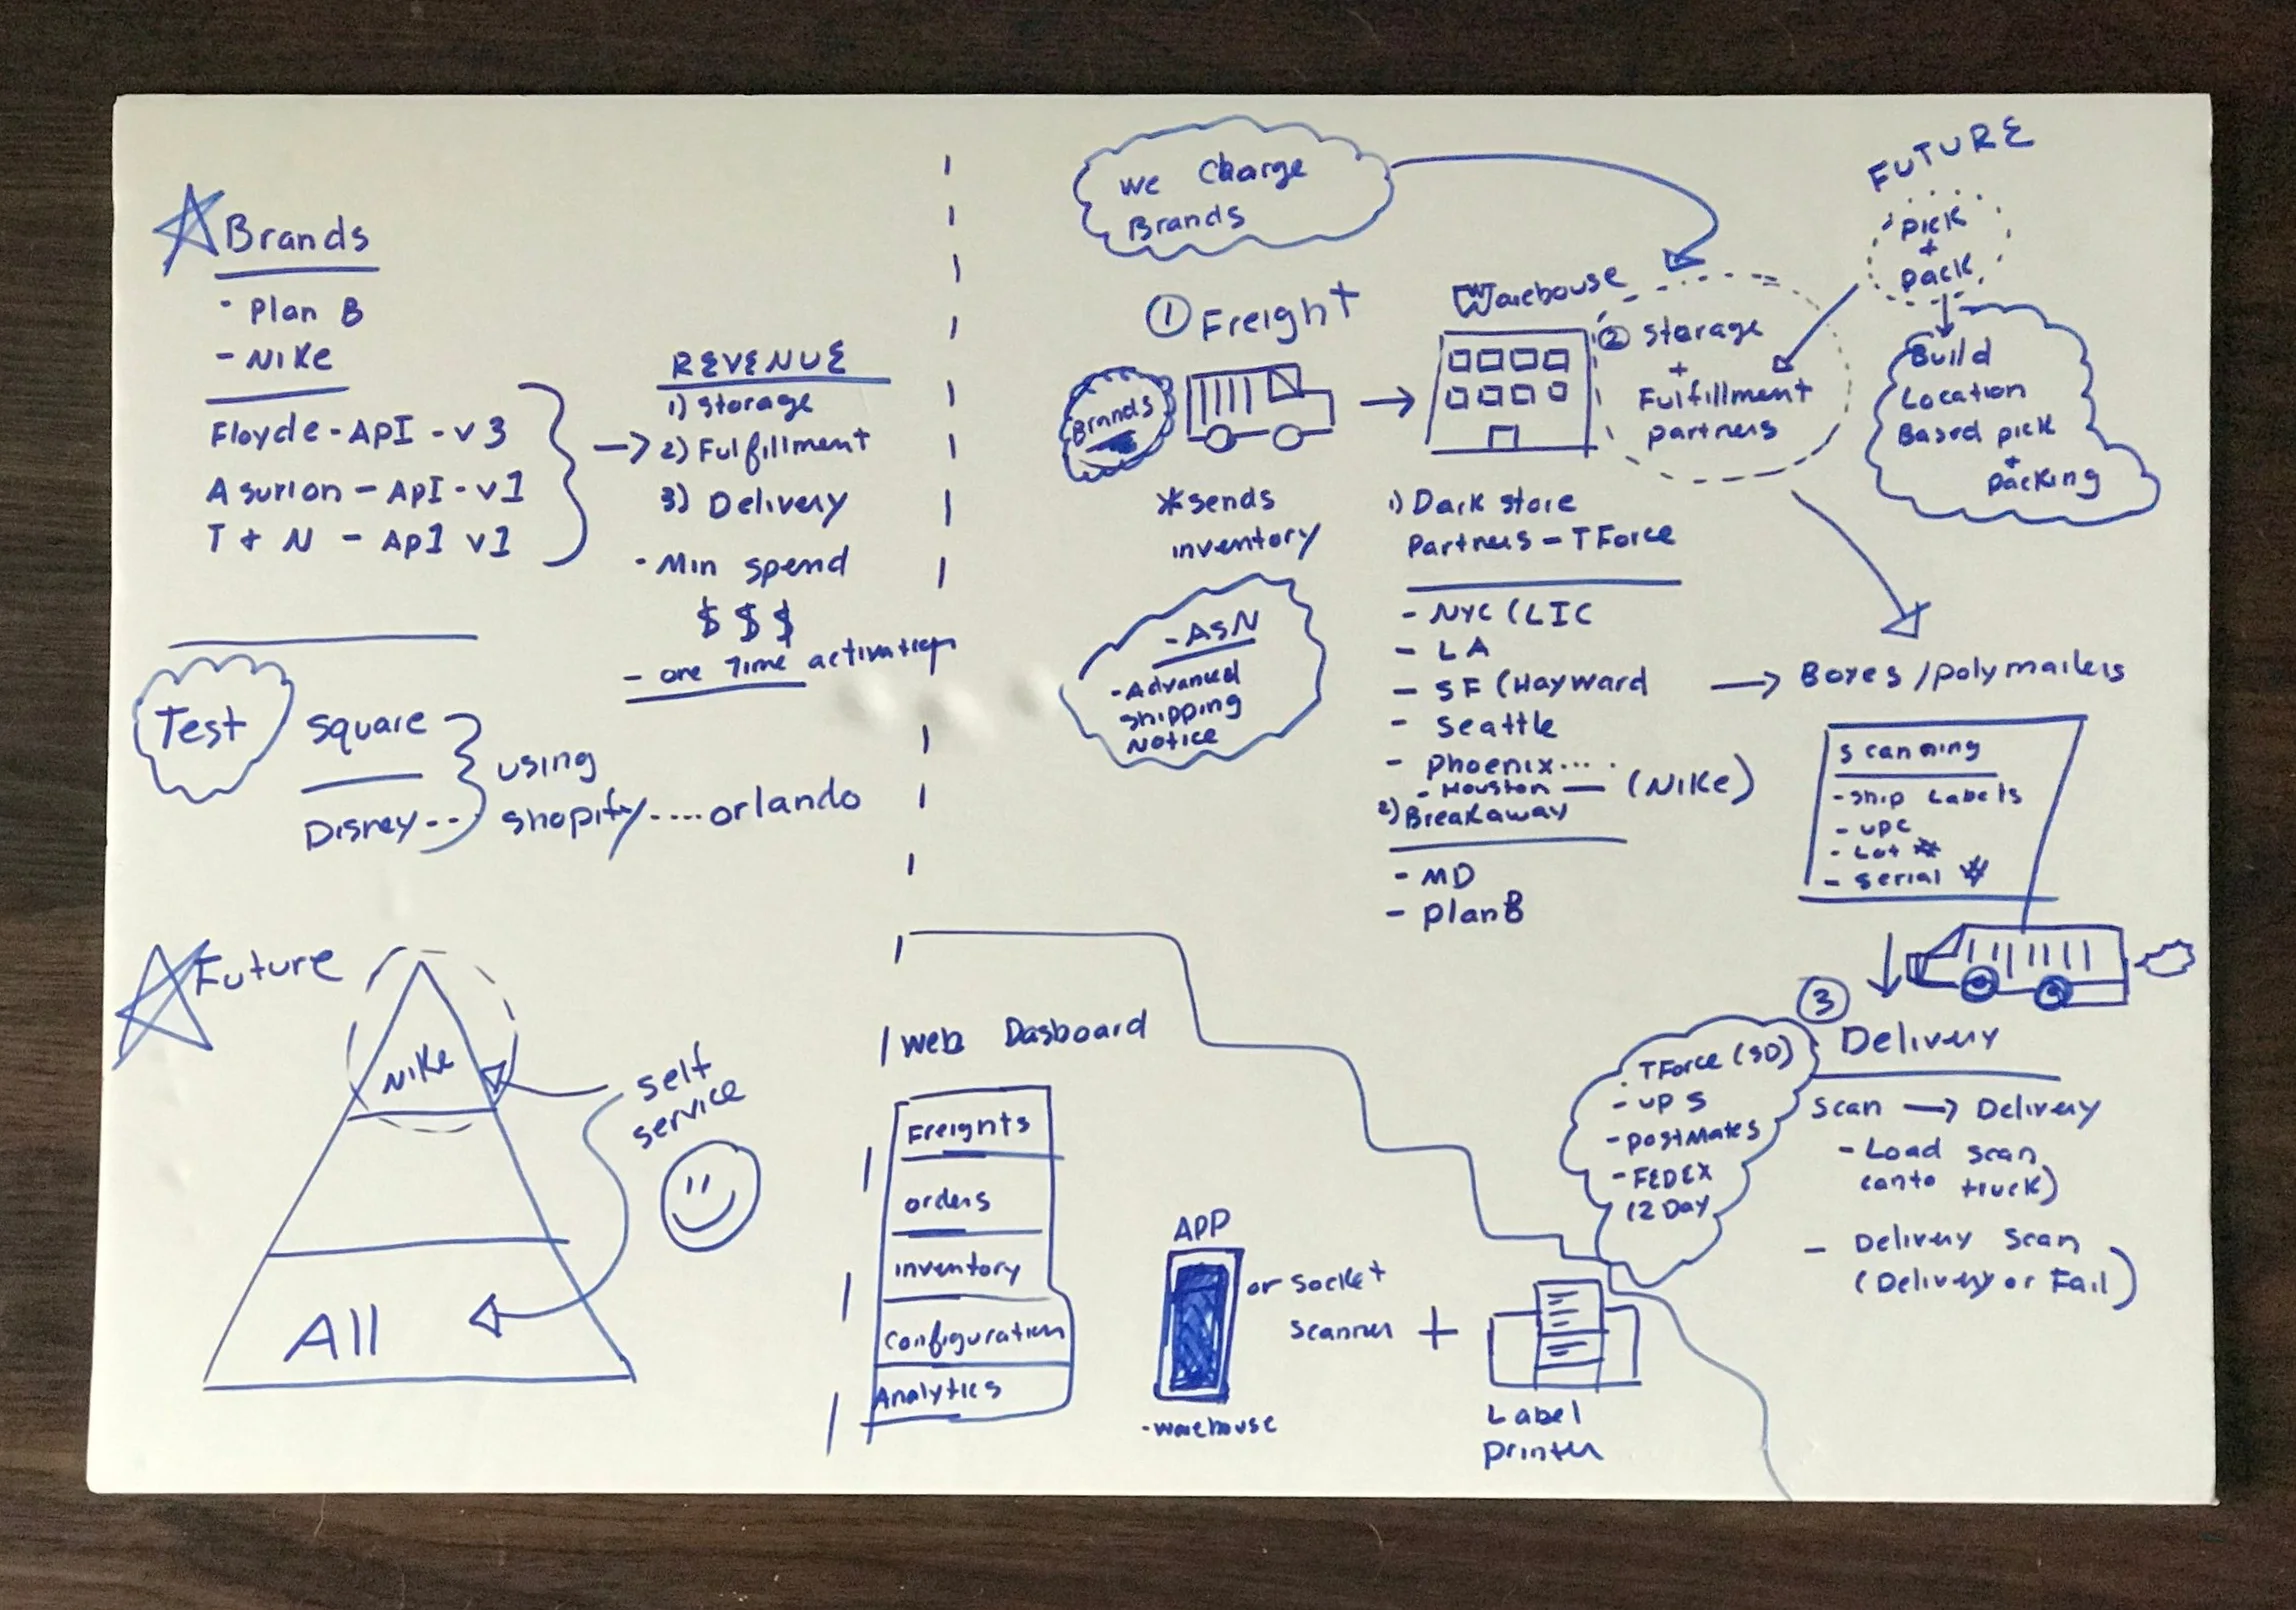 Brands
- Plan B
- NIKE
Floyde - API - v3
Asurion - API - v1
T + N - API v1
REVENUE
1) storage
→ 2) Fulfillment
3) Delivery
- Min spend
$ $ $
- one Time activation
Test
square
Disney--
using
shopify....orlando
Future
NIKE
All
self
service
we charge
Brands
① Freight
Brands
*sends
inventory
- ASN
- Advanced
shipping
Notice
Warehouse
② storage
+
Fulfillment
partners
FUTURE
pick
+
pack
Build
Location
Based pick
+
packing
1) Dark store
Partners - TForce
- NYC (LIC
- LA
- SF (Hayward
- Seattle
- Phoenix....
- Houston — (NIKE)
2) Breakaway
- MD
- planB
→ Boxes/polymailers
scanning
- ship Labels
- UPC
- Lot #
- serial #
③
Delivery
scan → Delivery
- Load scan
(anto truck)
- Delivery scan
(Delivery or Fail)
- TForce (SD)
- UPS
- postMates
- FEDEX
(2 Day
web Dasboard
Freights
orders
inventory
configuration
Analytics
APP
or socket
scanner +
- warehouse
Label
printer